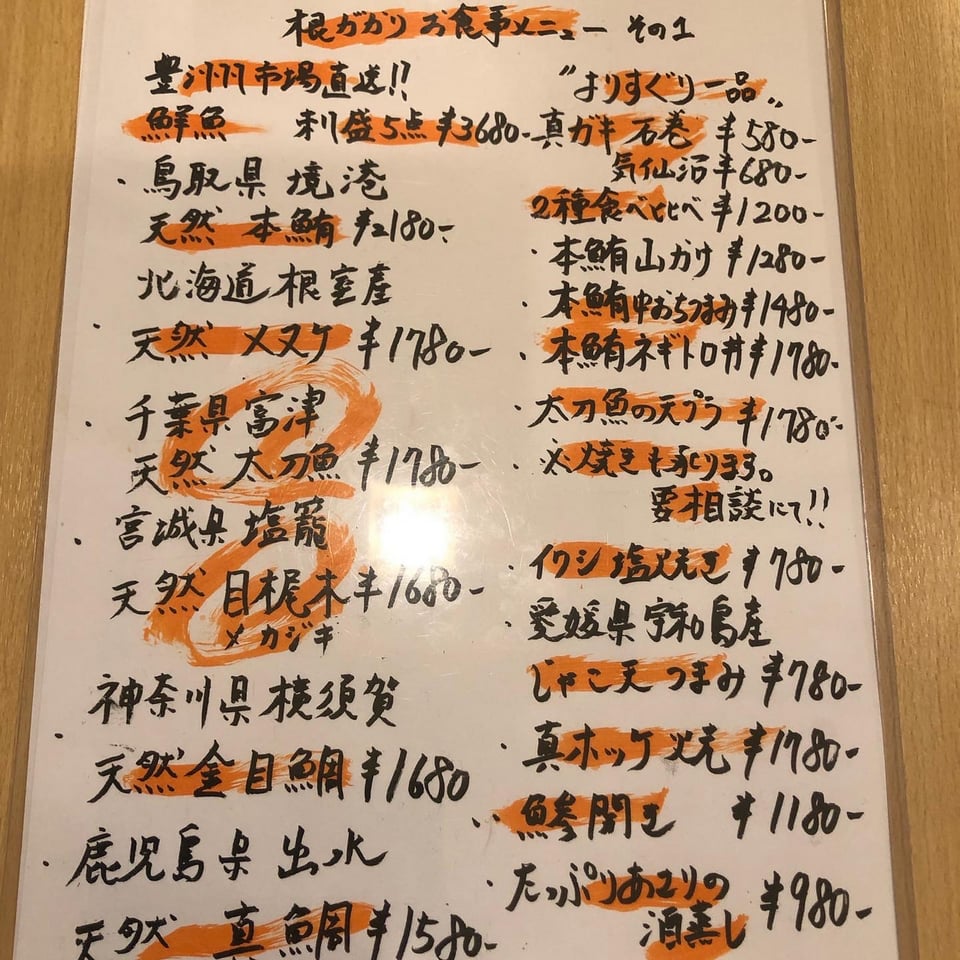 根がかり お食事メニュー その1
豊洲市場直送!!
鮮魚 刺盛5点 ¥3680-
・鳥取県 境港
天然 本鮪 ¥2180-
北海道根室産
・天然 メヌケ ¥1780-
・千葉県富津
天然 太刀魚 ¥1780-
・宮城県塩竈
天然 目梶木 ¥1680-
メカジキ
神奈川県横須賀
・天然金目鯛 ¥1680
・鹿児島県 出水
天然 真鯛 ¥1580-
"よりすぐり一品"
真ガキ 石巻 ¥580-
気仙沼 ¥680-
2種食べ比べ ¥1200-
・本鮪山かけ ¥1280-
・本鮪中おちつまみ ¥1480-
・本鮪ネギトロ丼 ¥1780-
・太刀魚の天プラ ¥1780-
・※焼きも承ります。
要相談にて!!
・イワシ塩焼き ¥780-
・愛媛県宇和島産
じゃこ天つまみ ¥780-
・真ホッケ焼 ¥1780-
・鯵開き ¥1180-
・たっぷりあさりの
酒蒸し ¥980-